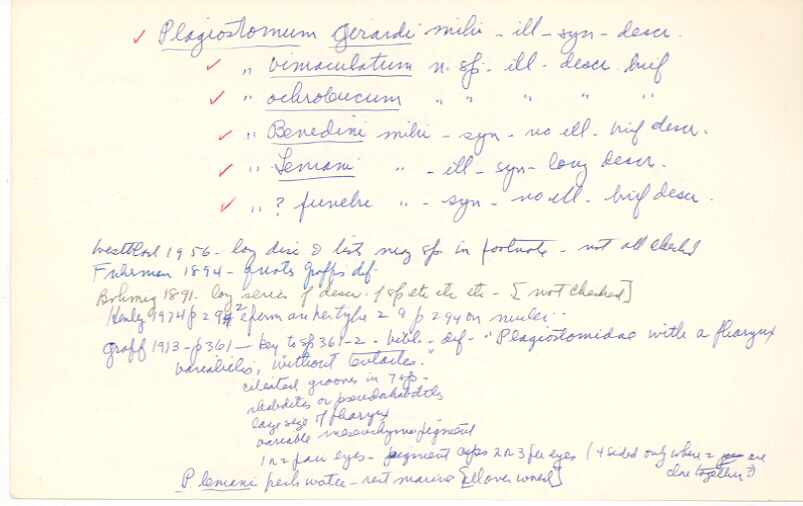 ✓ Plagiostomum Girardi mihi - ill - syn - descr.
✓ " vimaculatum n. sp - ill - descr. brief
✓ " ochroleucum " " " " "
✓ " Benedini mihi - syn - no ill - brief descr.
✓ " Lemani " - ill - syn - long descr.
✓ " ? funebre " - syn - no ill - brief descr.
Westblad 1956 - long disc & lists many sp in footnote - not all checked
Fuhrman 1894 - quotes Graff's def.
Bohmig 1891 - long series of descr. of sp etc etc etc - [not checked]
Henley 1974 p 29 sperm p 294 on nuclei
Graff 1913 - p 361 - key to sp 361-2 - bibl. - def - "Plagiostomidae with a pharynx
variabilis, without tentacles."
ciliated grooves in 7 sp -
rhabdites or pseudorhabdites
large size of pharynx
variable mesenchyme pigment
1 or 2 pair eyes - pigment cups 2 or 3 per eyes (4 sided only where 2 are
close together?)
P. lemani fresh water - rest marine [all over world]